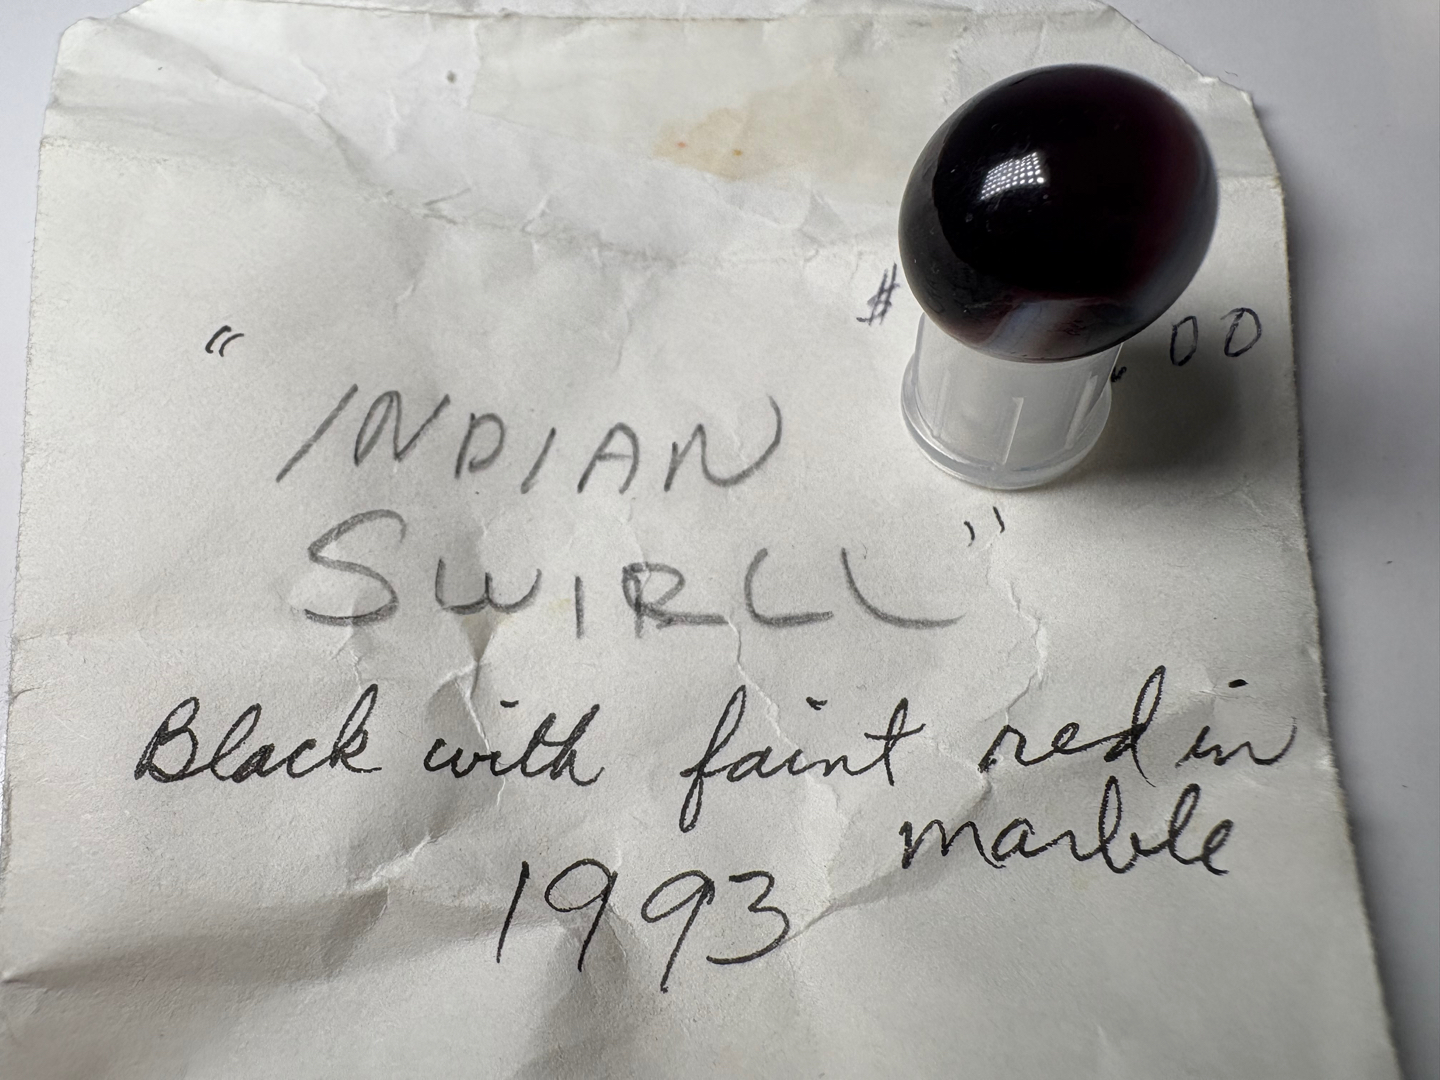 #         .00
"INDIAN
SWIRLL"
Black with faint red in
marble
1993